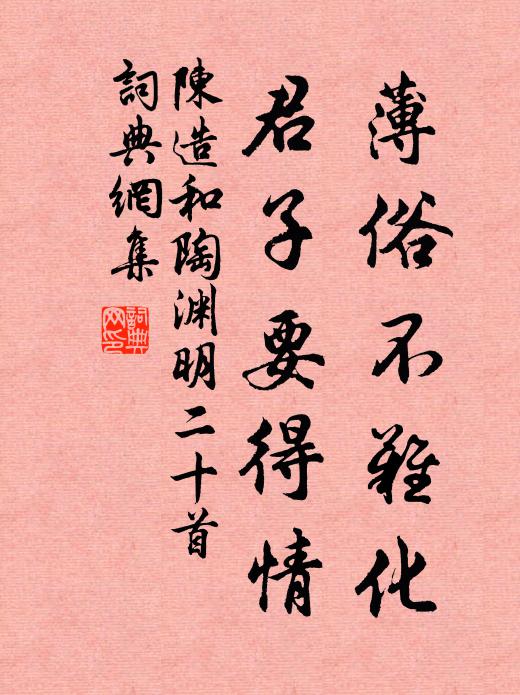 薄俗不難化
君子要得情
陳造和陶淵明二十首
詞典網集
詞典网印